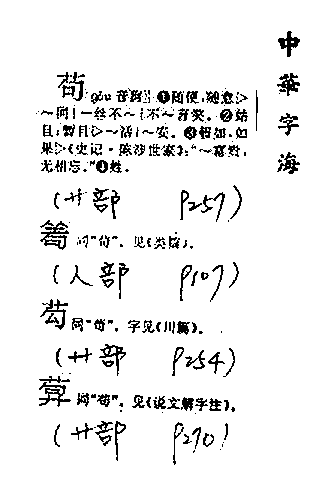 中華字海
苟 gǒu 音狗 ❶随便;随意▷
~同|一丝不~|不~言笑。❷姑
且;暂且▷~活|~安。❸假如;如
果▷《史记·陈涉世家》:“~富贵,
无相忘。”❹姓。
(艹部 P257)
同“苟”。见《类篇》。
(人部 P107)
芶 同“苟”。字见《川篇》。
(艹部 P254)
同“苟”。见《说文解字注》。
(艹部 P270)